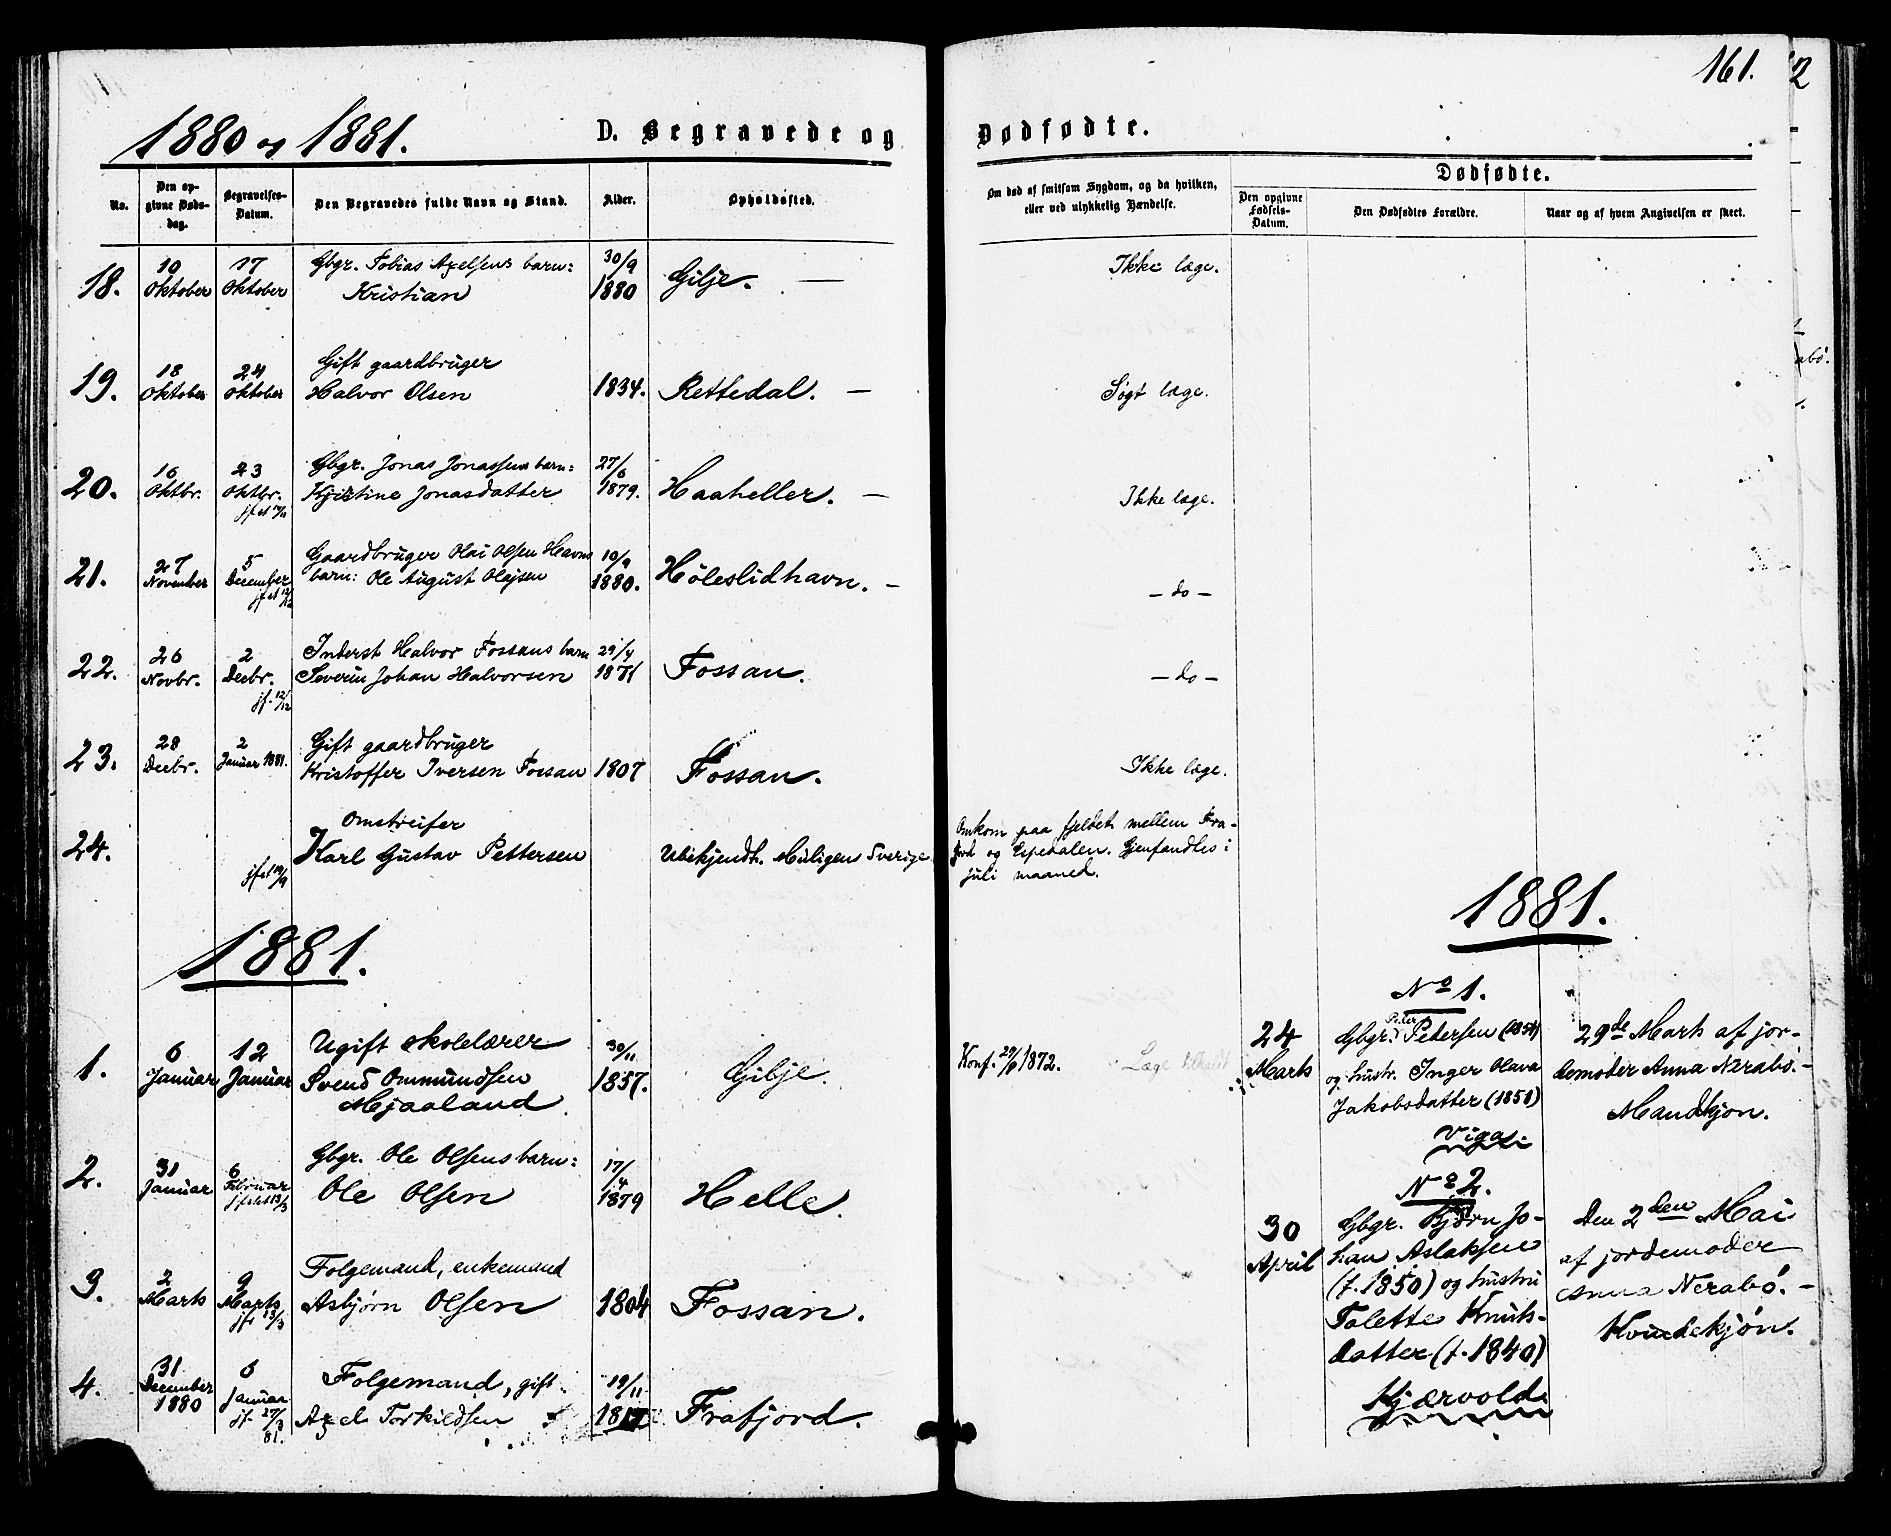 161.
2
1880 og 1881.
D. Begravede og Dødfødte.
No.
Den opgivne Dødsdag.
Begravelses-Datum.
Den Begravedes fulde Navn og Stand.
Alder.
Opholdssted.
Om død af smitsom Sygdom, og da hvilken, eller ved ulykkelig Hændelse.
Dødfødte.
Den opgivne Fødsels-Datum.
Den Dødfødtes Forældre.
Naar og af hvem Angivelsen er skeet.
18. 10 Oktober 17 Oktober Gbgr. Tobias Axelsens barn: Kristian 30/9 1880 Gilje. — Ikke læge.
19. 18 Oktober 24 Oktober Gift gaardbruger Halvor Olsen 1834. Rettedal. — Søgt læge.
20. 16 Oktbr. 23 Oktbr. Gbgr. Jonas Jonassens barn: Kjistine Jonasdatter 27/6 1879. Haaheller. — Ikke læge.
21. 27 November 5 December jfst 12/12 Gaardbruger Olai Olsen Havns barn: Ole August Olajsen 10/9 1880. Høleslidhavn. — — do —
22. 26 Novbr. 2 Decbr. jf. 12/12 Inderst Halvor Fossans barn Severin Johan Halvorsen 29/4 1871 Fossan. — do —
23. 28 Decbr. 2 Januar 1881. Gift gaardbruger Kristoffer Iversen Fossan 1807 Fossan. Ikke læge.
24. jfst 19/9 Omstreifer Karl Gustav Pettersen Ubekjendt. Muligens Sverige. Omkom paa fjeldet mellem Frafjord og Espedalen. Gjenfandtes i juli maaned.
1881.
1. 6 Januar 12 Januar Ugift skolelærer Svend Ommundsen Mjaaland. 30/11 1857. Gilje. Konf. 29/6 1872. Læge
2. 31 Januar 6 Februar jfst 13/3 Gbgr. Ole Olsens barn: Ole Olsen 17/4 1879 Helle.
3. 2 Marts 9 Marts jf. 13/3 Folgemand, enkemand Asbjørn Olsen 1804 Fossan.
4. 31 December 1880 6 Januar jf 27/3 81. Folgemand, gift. Axel Torkildsen 19/11 Frafjord.
1881.
No 1.
24 Marts
Gbgr. Peder Petersen (1854)
og hustr. Inger Olava
Jakobsdatter (1851)
Viga.
29de Marts af jor-
demoder Anna Nerabø. —
Mandkjøn.
No 2.
30 April
Gbgr. Bjørn Jo-
han Aslaksen
(f. 1850) og hustru
Tolette Knuts-
datter (f. 1840)
Kjærvold.
Den 2den Mai
af jordemoder
Anna Nerabø. —
Kvindekjøn.
abø.